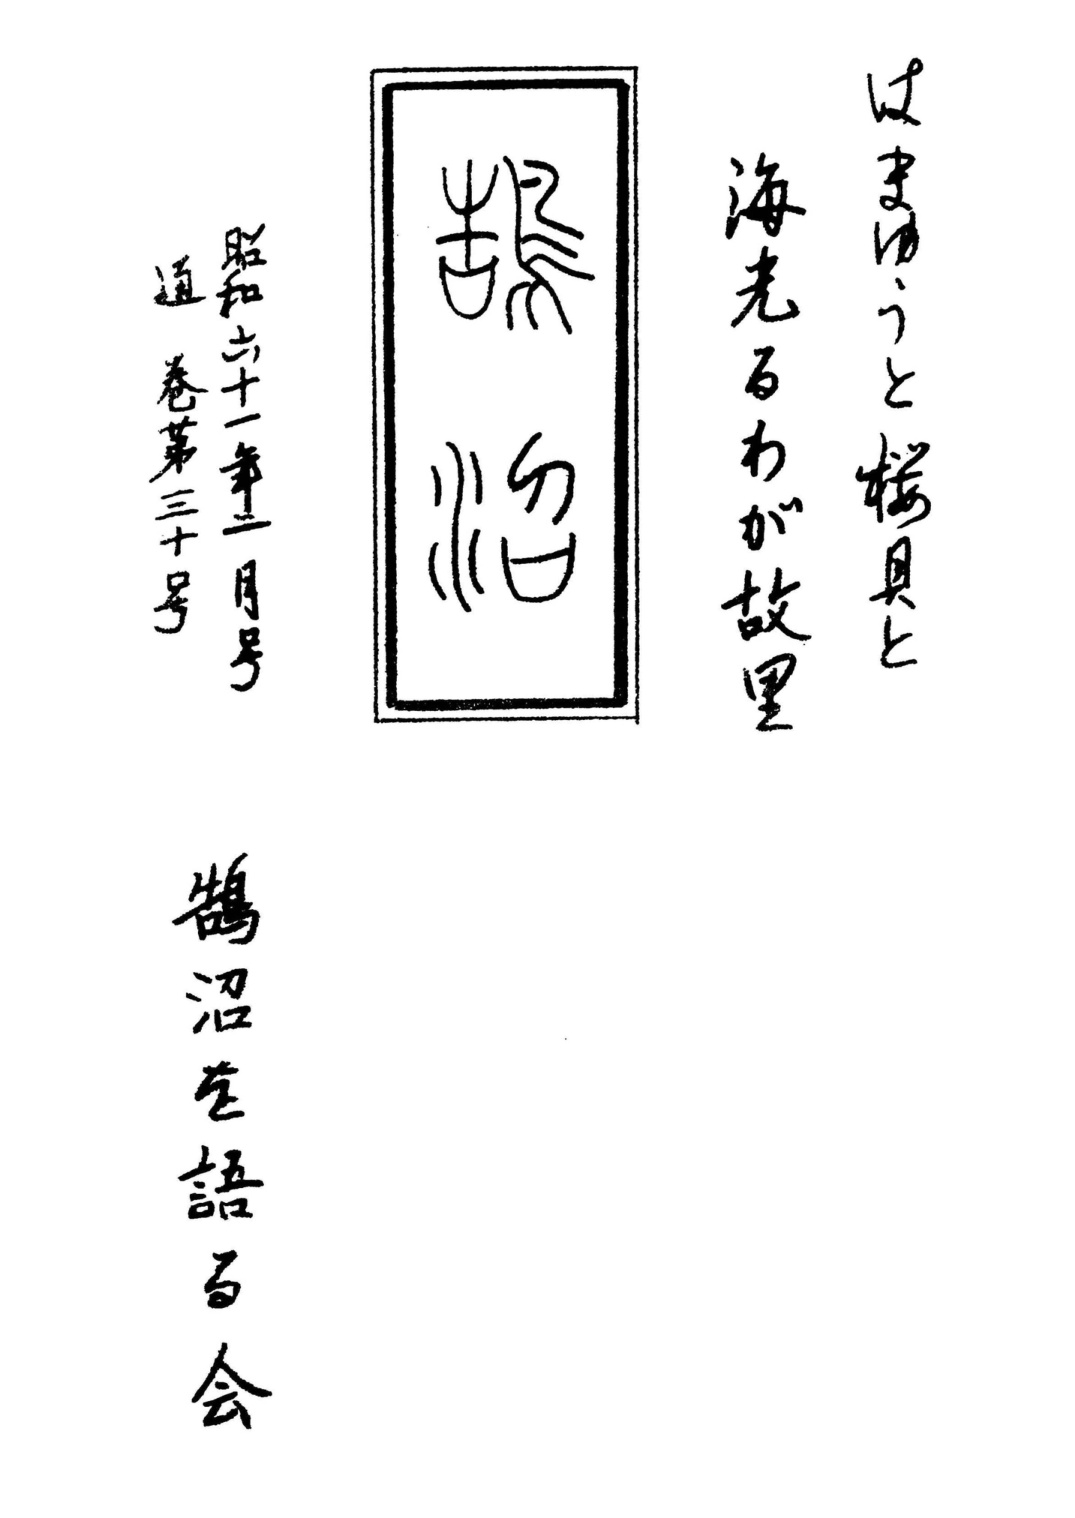 はまゆうと桜貝と
海光るわが故里
鵠沼
昭和六十一年二月号
通巻第三十号
鵠沼を語る会